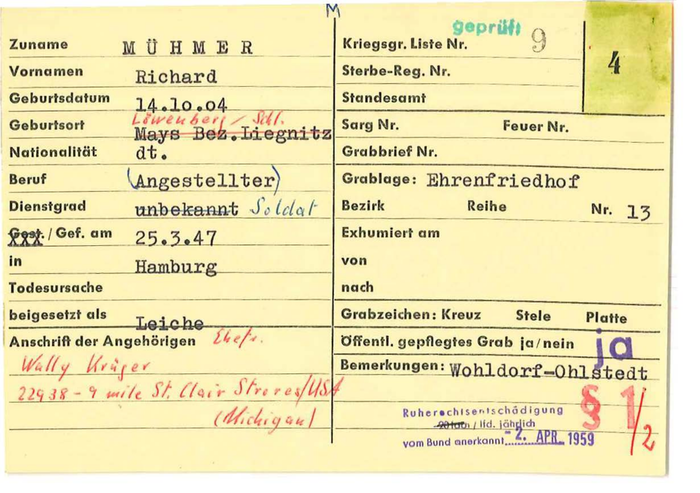 M
geprüft
Zuname MÜHMER
Vornamen Richard
Geburtsdatum 14.10.04
Löwenberg / Schl.
Geburtsort Mays Bez.Liegnitz
Nationalität dt.
Beruf (Angestellter)
Dienstgrad unbekannt Soldat
Gest. / Gef. am 25.3.47
in Hamburg
Todesursache
beigesetzt als Leiche
Anschrift der Angehörigen Ehefr.
Wally Krüger
22938 - 9 mile St. Clair Strores/USA
(Michigan)
Kriegsgr. Liste Nr. 9
4
Sterbe-Reg. Nr.
Standesamt
Sarg Nr. Feuer Nr.
Grabbrief Nr.
Grablage: Ehrenfriedhof
Bezirk Reihe Nr. 13
Exhumiert am
von
nach
Grabzeichen: Kreuz Stele Platte
Öffentl. gepflegtes Grab ja/nein ja
Bemerkungen: Wohldorf-Ohlstedt
Ruherechtsentschädigung
/ lfd. jährlich
vom Bund anerkannt -2. APR. 1959
§ 1/2